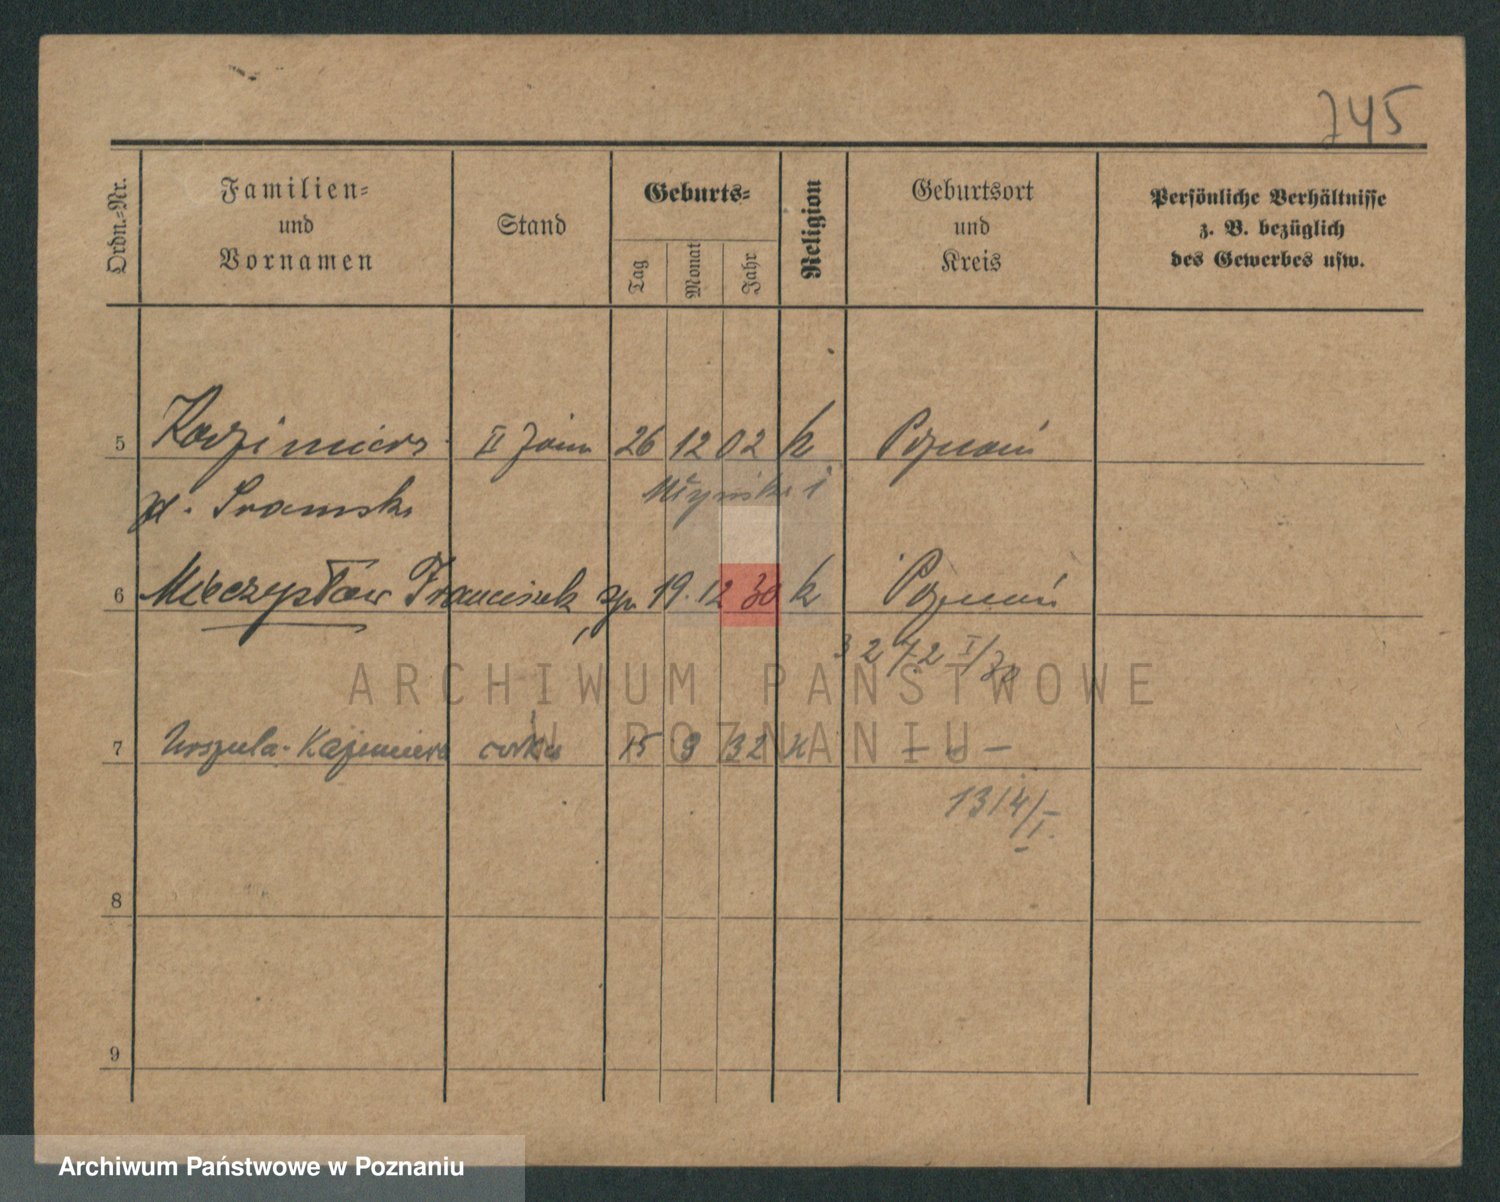 745
Ordn.=Nr.
Familien=
und
Vornamen
Stand
Geburts=
Tag
Monat
Jahr
Religion
Geburtsort
und
Kreis
Persönliche Verhältnisse
z. B. bezüglich
des Gewerbes usw.
5 Kazimiera II 26 12 02 k Poznań
Sramska
6 Mieczysław Franciszek 19. 12 30 k Poznań
3272 I/30
ARCHIWUM PAŃSTWOWE
W POZNANIU
7 Urszula-Kazimiera córka 15 9 32 k — " —
1314/I.
8
9
Archiwum Państwowe w Poznaniu